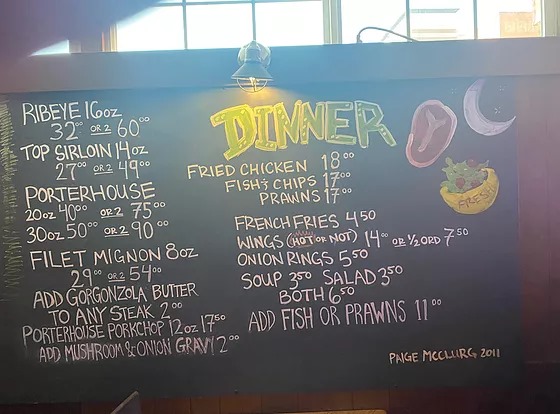 RIBEYE 16oz
32⁰⁰ OR 2 60⁰⁰
TOP SIRLOIN 14oz
27⁰⁰ OR 2 49⁰⁰
PORTERHOUSE
20oz 40⁰⁰ OR 2 75⁰⁰
30oz 50⁰⁰ OR 2 90⁰⁰
FILET MIGNON 8oz
29⁰⁰ OR 2 54⁰⁰
ADD GORGONZOLA BUTTER
TO ANY STEAK 2⁰⁰
PORTERHOUSE PORKCHOP 12oz 17⁵⁰
ADD MUSHROOM & ONION GRAVY 2⁰⁰
DINNER
FRIED CHICKEN 18⁰⁰
FISH & CHIPS 17⁰⁰
PRAWNS 17⁰⁰
FRENCH FRIES 4⁵⁰
WINGS (HOT OR NOT) 14⁰⁰ OR ½ ORD 7⁵⁰
ONION RINGS 5⁵⁰
SOUP 3⁵⁰ SALAD 3⁵⁰
BOTH 6⁵⁰
ADD FISH OR PRAWNS 11⁰⁰
FRESH
PAIGE MCCLURG 2011